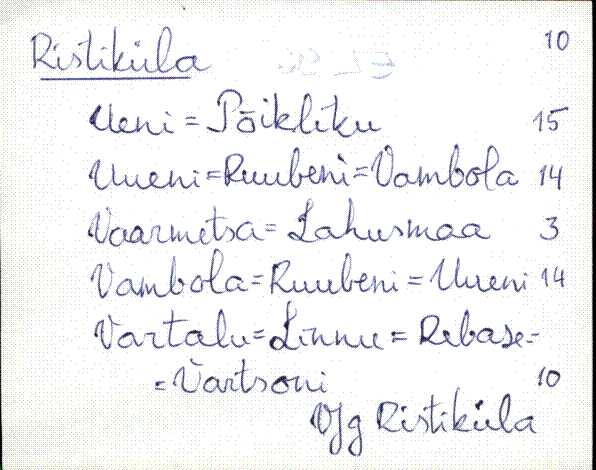 Ristiküla 10
Ueni = Põikliku 15
Uueni = Ruubeni = Vambola 14
Vaarmetsa = Lahusmaa 3
Vambola = Ruubeni = Uueni 14
Vartalu = Linnu = Rebase =
= Vartsoni 10
Vjg Ristiküla